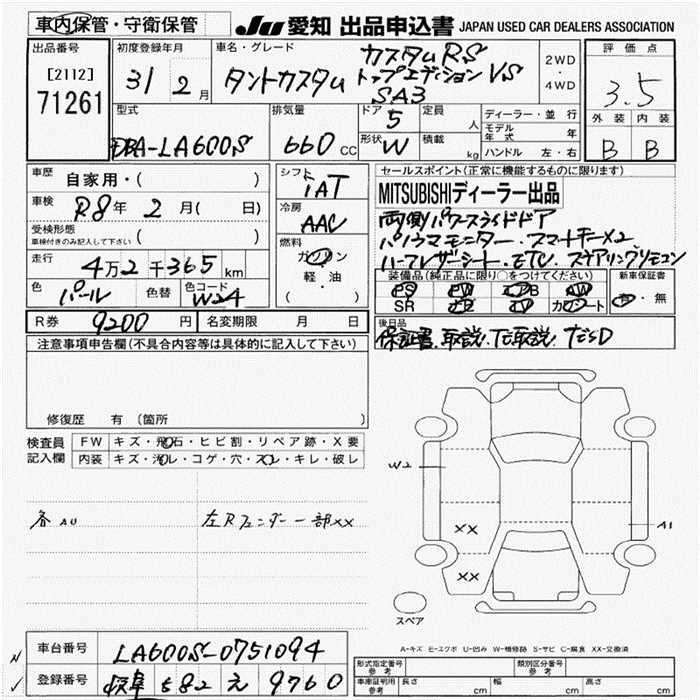 車内保管・守衛保管
JU 愛知 出品申込書 JAPAN USED CAR DEALERS ASSOCIATION
出品番号 初度登録年月 車名・グレード 評価点
[2112] 71261 31 2月 タントカスタム カスタムRS トップエディション VS SA3 2WD・4WD 3.5
外装 内装
B B
型式 排気量 ドア 定員 ディーラー・並行
DBA-LA600S 660CC 5 人 モデル年式 年
形状 積載 ハンドル 左・右
W kg
車歴 自家用・( )
車検 R8年 2月( 日)
受検形態 車検付きのみ記入して下さい ( )
走行 4万2千365km
色 パール 色替 色コード W24
シフト IAT
冷房 AAC
燃料 ガソリン・軽・油 ( )
セールスポイント(正常に機能するものに限ります)
MITSUBISHIディーラー出品
両側パワースライドドア
パノラマモニター・スマートキーx2
ハーフレザーシート・ETC・ステアリングリモコン
装備品(純正品に限り○をつけてください) 新車保証書
PS PW エアB AW 有・無
SR ナビ TV カワシート
R券 9200円 名変期限 月 日
後日品
保証書.取説.
注意事項申告欄(不具合内容等は具体的に記入して下さい)
修復歴 有 (箇所 )
検査員記入欄 FW キズ・飛石・ヒビ割・リペア跡・X要
内装 キズ・汚レ・コゲ・穴・スレ・キレ・破レ
各AU 左Rフェンダー一部XX
W2
XX
A1
XX
スペア
A-キズ E-エクボ U-凹み W-補修跡 S-サビ C-腐食 XX-交換済
車台番号 LA600S-0751094
登録番号 岐阜 582 え 9760
形式指定番号 参考 類別区分番号 参考
車庫証明用 参考 長さ cm 幅 cm 高さ cm